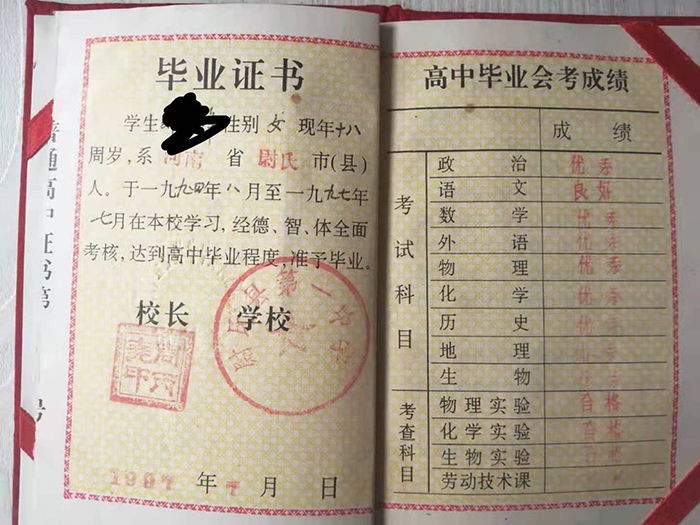 普通高中证书第
号
毕业证书
学生 性别 女 现年十八
周岁，系 河南 省 尉氏 市(县)
人。于一九九四年八月至一九九七年
七月在本校学习，经德、智、体全面
考核，达到高中毕业程度，准予毕业。
校长 学校
1997 年 7 月 日
高中毕业会考成绩
成 绩
考试科目
政 治 优秀
语 文 良好
数 学 优秀
外 语 优秀
物 理 优秀
化 学 优秀
历 史 优秀
地 理 优秀
生 物
考查科目
物理实验 合格
化学实验 合格
生物实验 合格
劳动技术课